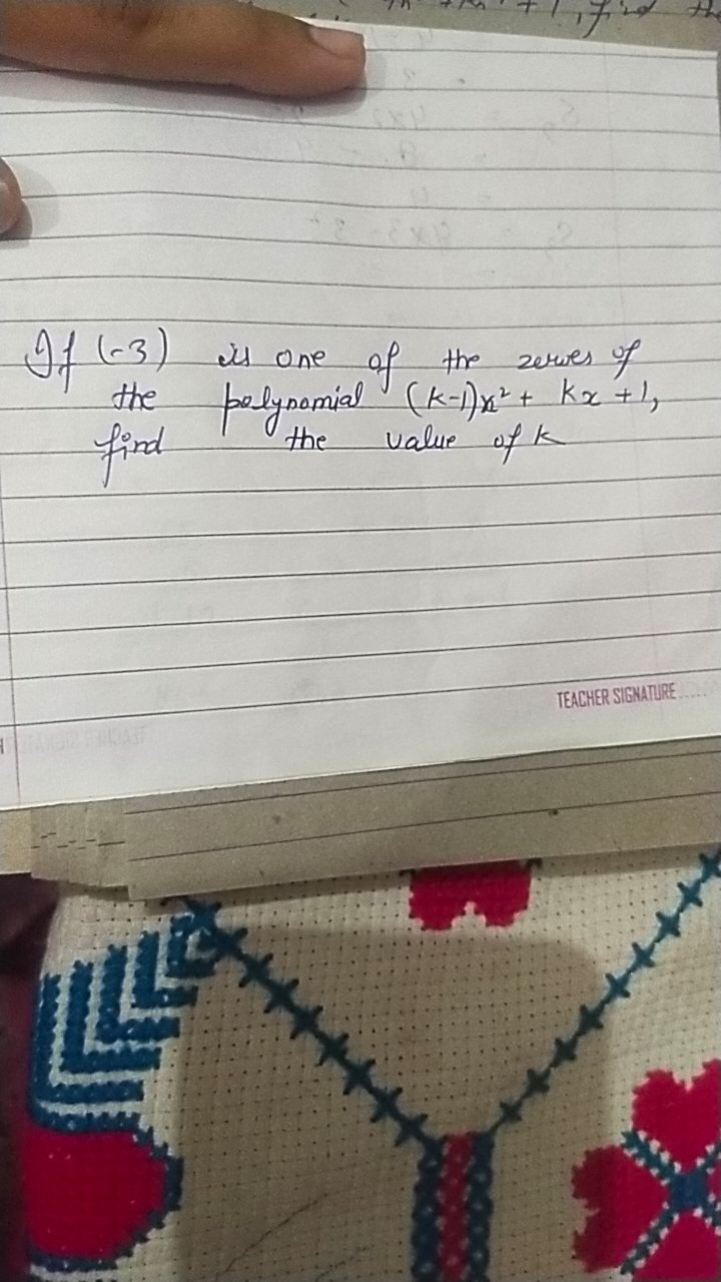 +1, find the
If (-3) is one of the zeroes of
the polynomial (k-1)x² + kx +1,
find the value of k
TEACHER SIGNATURE